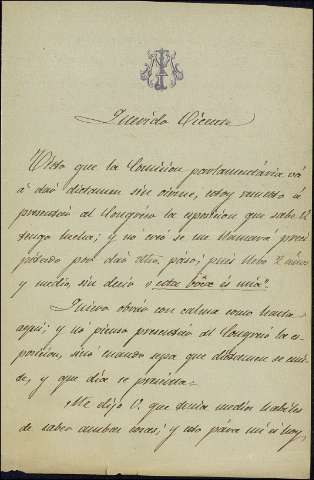 Querido Vicente
Visto que la Comision parlamentária vá
á dar dictámen sin oirme, estoy resuelto á
presentar al Congreso la esposicion que sabe V.
tengo hecha; y nó creo se me llamará preci
pitado por dar dho. paso; pues llebo 2 años
y medio, sin decir "esta bóca és mia".
Quiero obrar con calma como hasta
aqui; y nó pienso presentar al Congreso la es-
posicion, sinó cuando sepa que dictámen se emi-
te, y que dia se presenta.
Me dijo V. que tenia medios habiles
de saber ambas cosas; y esto pára mi és hoy,